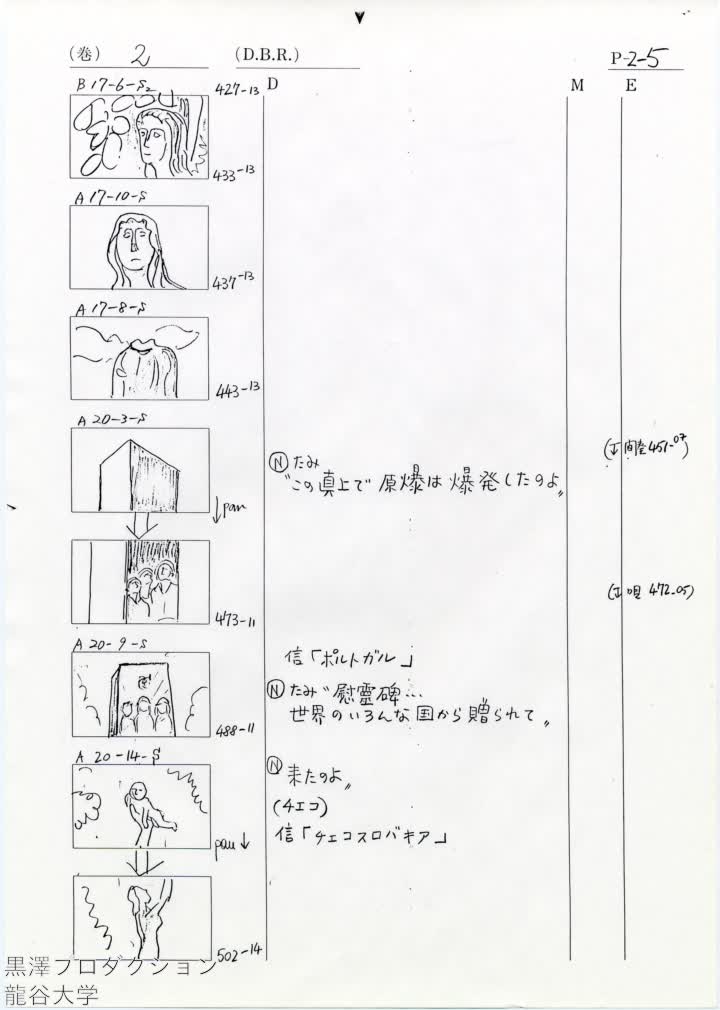 (巻) 2 (D.B.R.) P-2-5
D M E
B 17-6-S2 427-13
433-13
A 17-10-S
437-13
A 17-8-S
443-13
A 20-3-S
Ⓝ たみ
〝この真上で 原爆は爆発したのよ〟
451-07
pan
472-05
473-11
A 20-9-S
信「ポルトガル」
Ⓝ たみ〝慰霊碑…
世界のいろんな国から贈られて〟
488-11
A 20-14-S
Ⓝ 来たのよ〟
(チェコ)
信「チェコスロバキア」
pan
502-14
黒澤プロダクション
龍谷大学